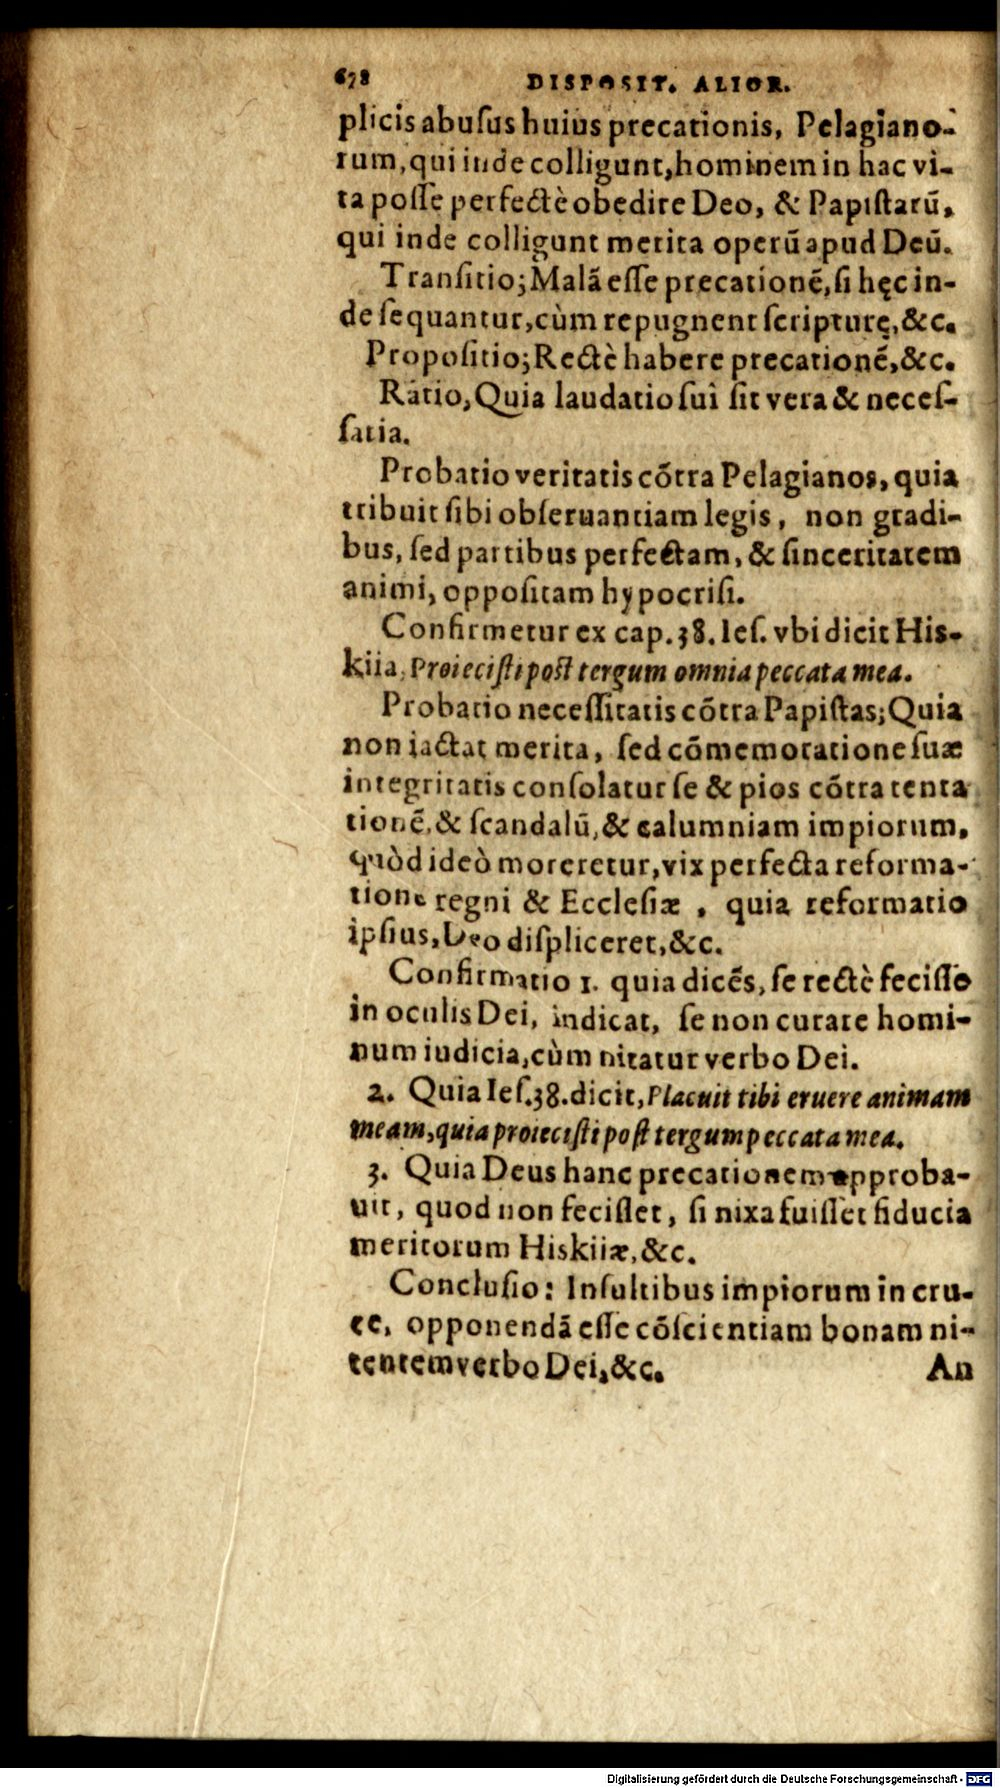 678 DISPOSIT. ALIOR.
plicis abuſus huius precationis, Pelagiano-
rum, qui inde colligunt, hominem in hac vi-
ta poſſe perfectè obedire Deo, & Papiſtarū,
qui inde colligunt merita operū apud Deū.
Tranſitio; Malā eſſe precationē, ſi hęc in-
de ſequantur, cùm repugnent ſcripturę, &c.
Propoſitio; Rectè habere precationē, &c.
Ratio, Quia laudatio ſui ſit vera & neceſ-
ſaria.
Probatio veritatis cōtra Pelagianos, quia
tribuit ſibi obſeruantiam legis, non gradi-
bus, ſed partibus perfectam, & ſinceritatem
animi, oppoſitam hypocriſi.
Confirmetur ex cap. 38. Ieſ. vbi dicit His-
kiia, Proieciſti poſt tergum omnia peccata mea.
Probatio neceſſitatis cōtra Papiſtas; Quia
non iactat merita, ſed cōmemoratione ſuæ
integritatis conſolatur ſe & pios cōtra tenta
tionē, & ſcandalū, & calumniam impiorum,
quòd ideò moreretur, vix perfecta reforma-
tione regni & Eccleſiæ, quia reformatio
ipſius, Deo diſpliceret, &c.
Confirmatio 1. quia dicēs, ſe rectè feciſſe
in oculis Dei, indicat, ſe non curare homi-
num iudicia, cùm nitatur verbo Dei.
2. Quia Ieſ. 38. dicit, Placuit tibi eruere animam
meam, quia proieciſti poſt tergum peccata mea.
3. Quia Deus hanc precationem approba-
uit, quod non feciſſet, ſi nixa fuiſſet fiducia
meritorum Hiskiiæ, &c.
Concluſio: Inſultibus impiorum in cru-
ce, opponendā eſſe cōſcientiam bonam ni-
tentem verbo Dei, &c. An
Digitalisierung gefördert durch die Deutsche Forschungsgemeinschaft - DFG